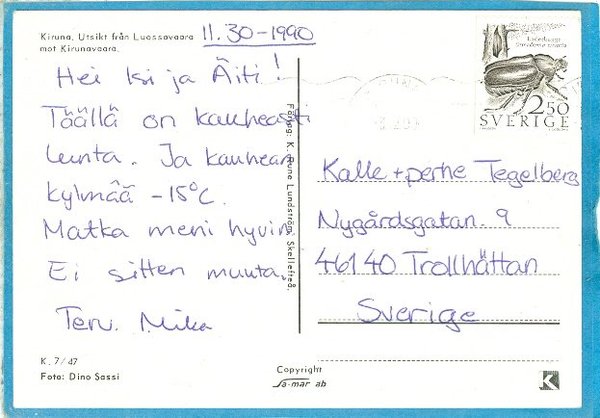 Kiruna, Utsikt från Luossavaara
mot Kirunavaara.
11.30-1990
Hei Isi ja Äiti!
Täällä on kauheasti
lunta. Ja kauhean
kylmää -15°C.
Matka meni hyvin
Ei sitten muuta.
Terv. Mika
K. 7/47
Foto: Dino Sassi
Förlag: K. Rune Lundström, Skellefteå.
Copyright
Sa-mar ab
2.50
SVERIGE
Kalle + perhe Tegelberg
Nygårdsgatan. 9
46140 Trollhättan
Sverige
K